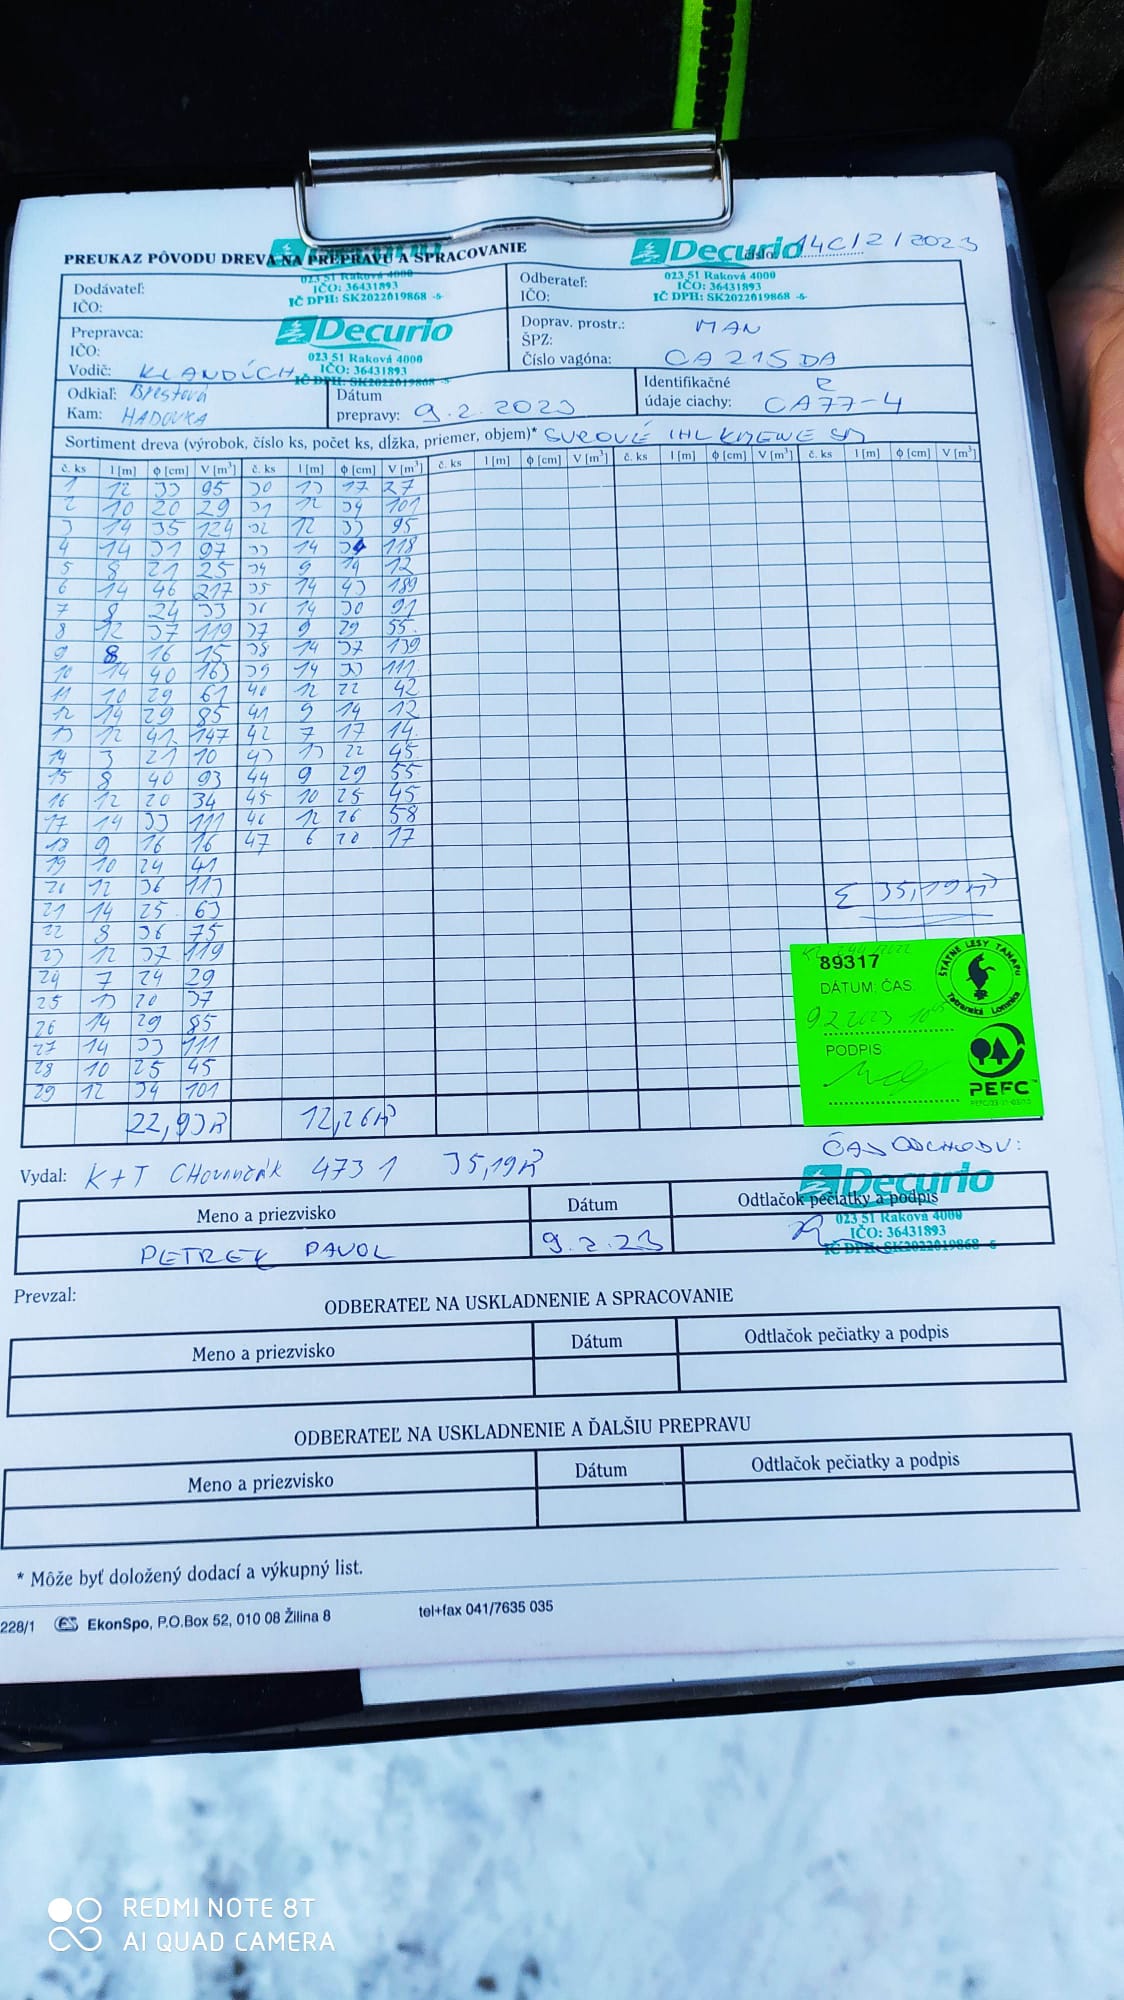 PREUKAZ PÔVODU DREVA NA PREPRAVU A SPRACOVANIE
Decurio číslo: 14C/2/2023
Dodávateľ:
IČO:
023 51 Raková 4000
IČO: 36431893
IČ DPH: SK2022019868 -5-
Odberateľ:
IČO:
023 51 Raková 4000
IČO: 36431893
IČ DPH: SK2022019868 -5-
Prepravca:
IČO:
Vodič: KLANDÍCH
Decurio
023 51 Raková 4000
IČO: 36431893
IČ DPH: SK2022019868 -5-
Doprav. prostr.: MAN
ŠPZ:
Číslo vagóna: CA 215 DA
Odkiaľ: Brestová
Kam: HADOVKA
Dátum
prepravy: 9.2.2023
Identifikačné
údaje ciachy: CA77-4
Sortiment dreva (výrobok, číslo ks, počet ks, dĺžka, priemer, objem)* SUROVÉ IHL KMENE
č. ks l [m] ϕ [cm] V [m³] č. ks l [m] ϕ [cm] V [m³] č. ks l [m] ϕ [cm] V [m³] č. ks l [m] ϕ [cm] V [m³] č. ks l [m] ϕ [cm] V [m³]
1 12 33 95 30 13 17 27
2 10 20 29 31 12 34 101
3 14 35 124 32 12 33 95
4 14 31 97 33 14 34 118
5 8 21 25 34 9 14 12
6 14 46 217 35 14 43 189
7 8 24 33 36 14 30 91
8 12 37 119 37 9 29 55
9 8 16 15 38 14 37 139
10 14 40 163 39 14 33 111
11 10 29 61 40 12 22 42
12 14 29 85 41 9 14 12
13 12 41 147 42 7 17 14
14 3 21 10 43 13 22 45
15 8 40 93 44 9 29 55
16 12 20 34 45 10 25 45
17 14 33 111 46 12 26 58
18 9 16 16 47 6 20 17
19 10 24 41
20 12 36 113
21 14 25 63
22 8 36 75
23 12 37 119
24 7 24 29
25 13 20 37
26 14 29 85
27 14 33 111
28 10 25 45
29 12 34 101
Σ 35,19 m³
22,93 m³ 12,26 m³
89317
DÁTUM; ČAS
9.2.2023
PODPIS
ŠTÁTNE LESY TANAPu
Tatranská Lomnica
PEFC™
ČAS ODCHODU:
Vydal: K+T CHOVANČÁK 4731 35,19 m³
Decurio
023 51 Raková 4000
IČO: 36431893
IČ DPH: SK2022019868 -5
Meno a priezvisko Dátum Odtlačok pečiatky a podpis
PETREK PAVOL 9.2.23
Prevzal:
ODBERATEĽ NA USKLADNENIE A SPRACOVANIE
Meno a priezvisko Dátum Odtlačok pečiatky a podpis
ODBERATEĽ NA USKLADNENIE A ĎALŠIU PREPRAVU
Meno a priezvisko Dátum Odtlačok pečiatky a podpis
* Môže byť doložený dodací a výkupný list.
228/1 ES EkonSpo, P.O.Box 52, 010 08 Žilina 8 tel+fax 041/7635 035
REDMI NOTE 8T
AI QUAD CAMERA